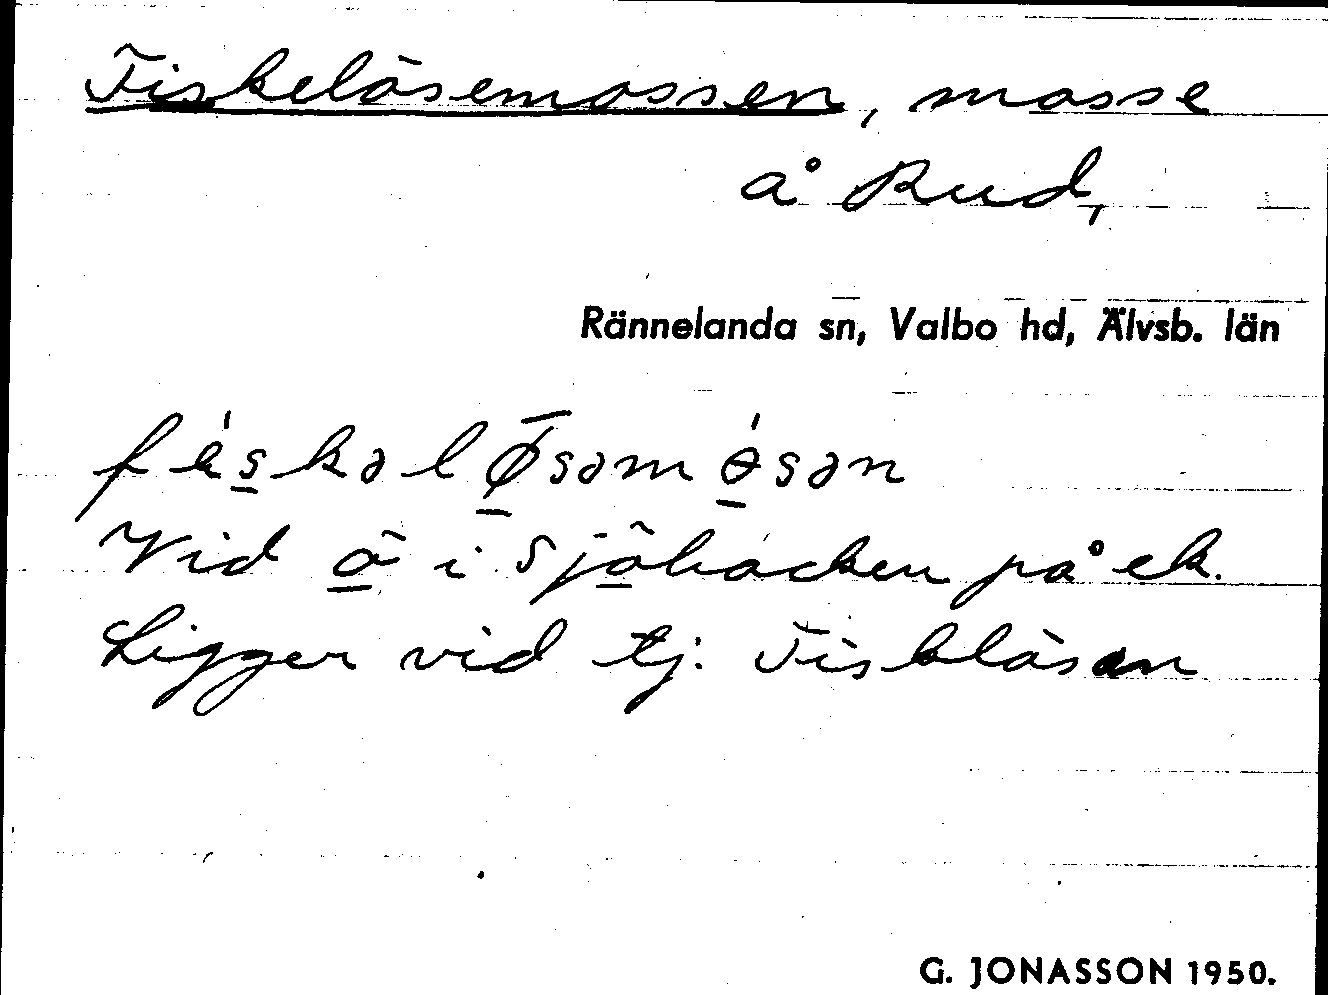 Fiskelösemossen, mosse
å Rud,
Rännelanda sn, Valbo hd, Älvsb. län
fèskəlø̄səmòsən
Vid ö i Sjöbacken på ek.
Ligger vid tj. Fisklösen
G. JONASSON 1950.